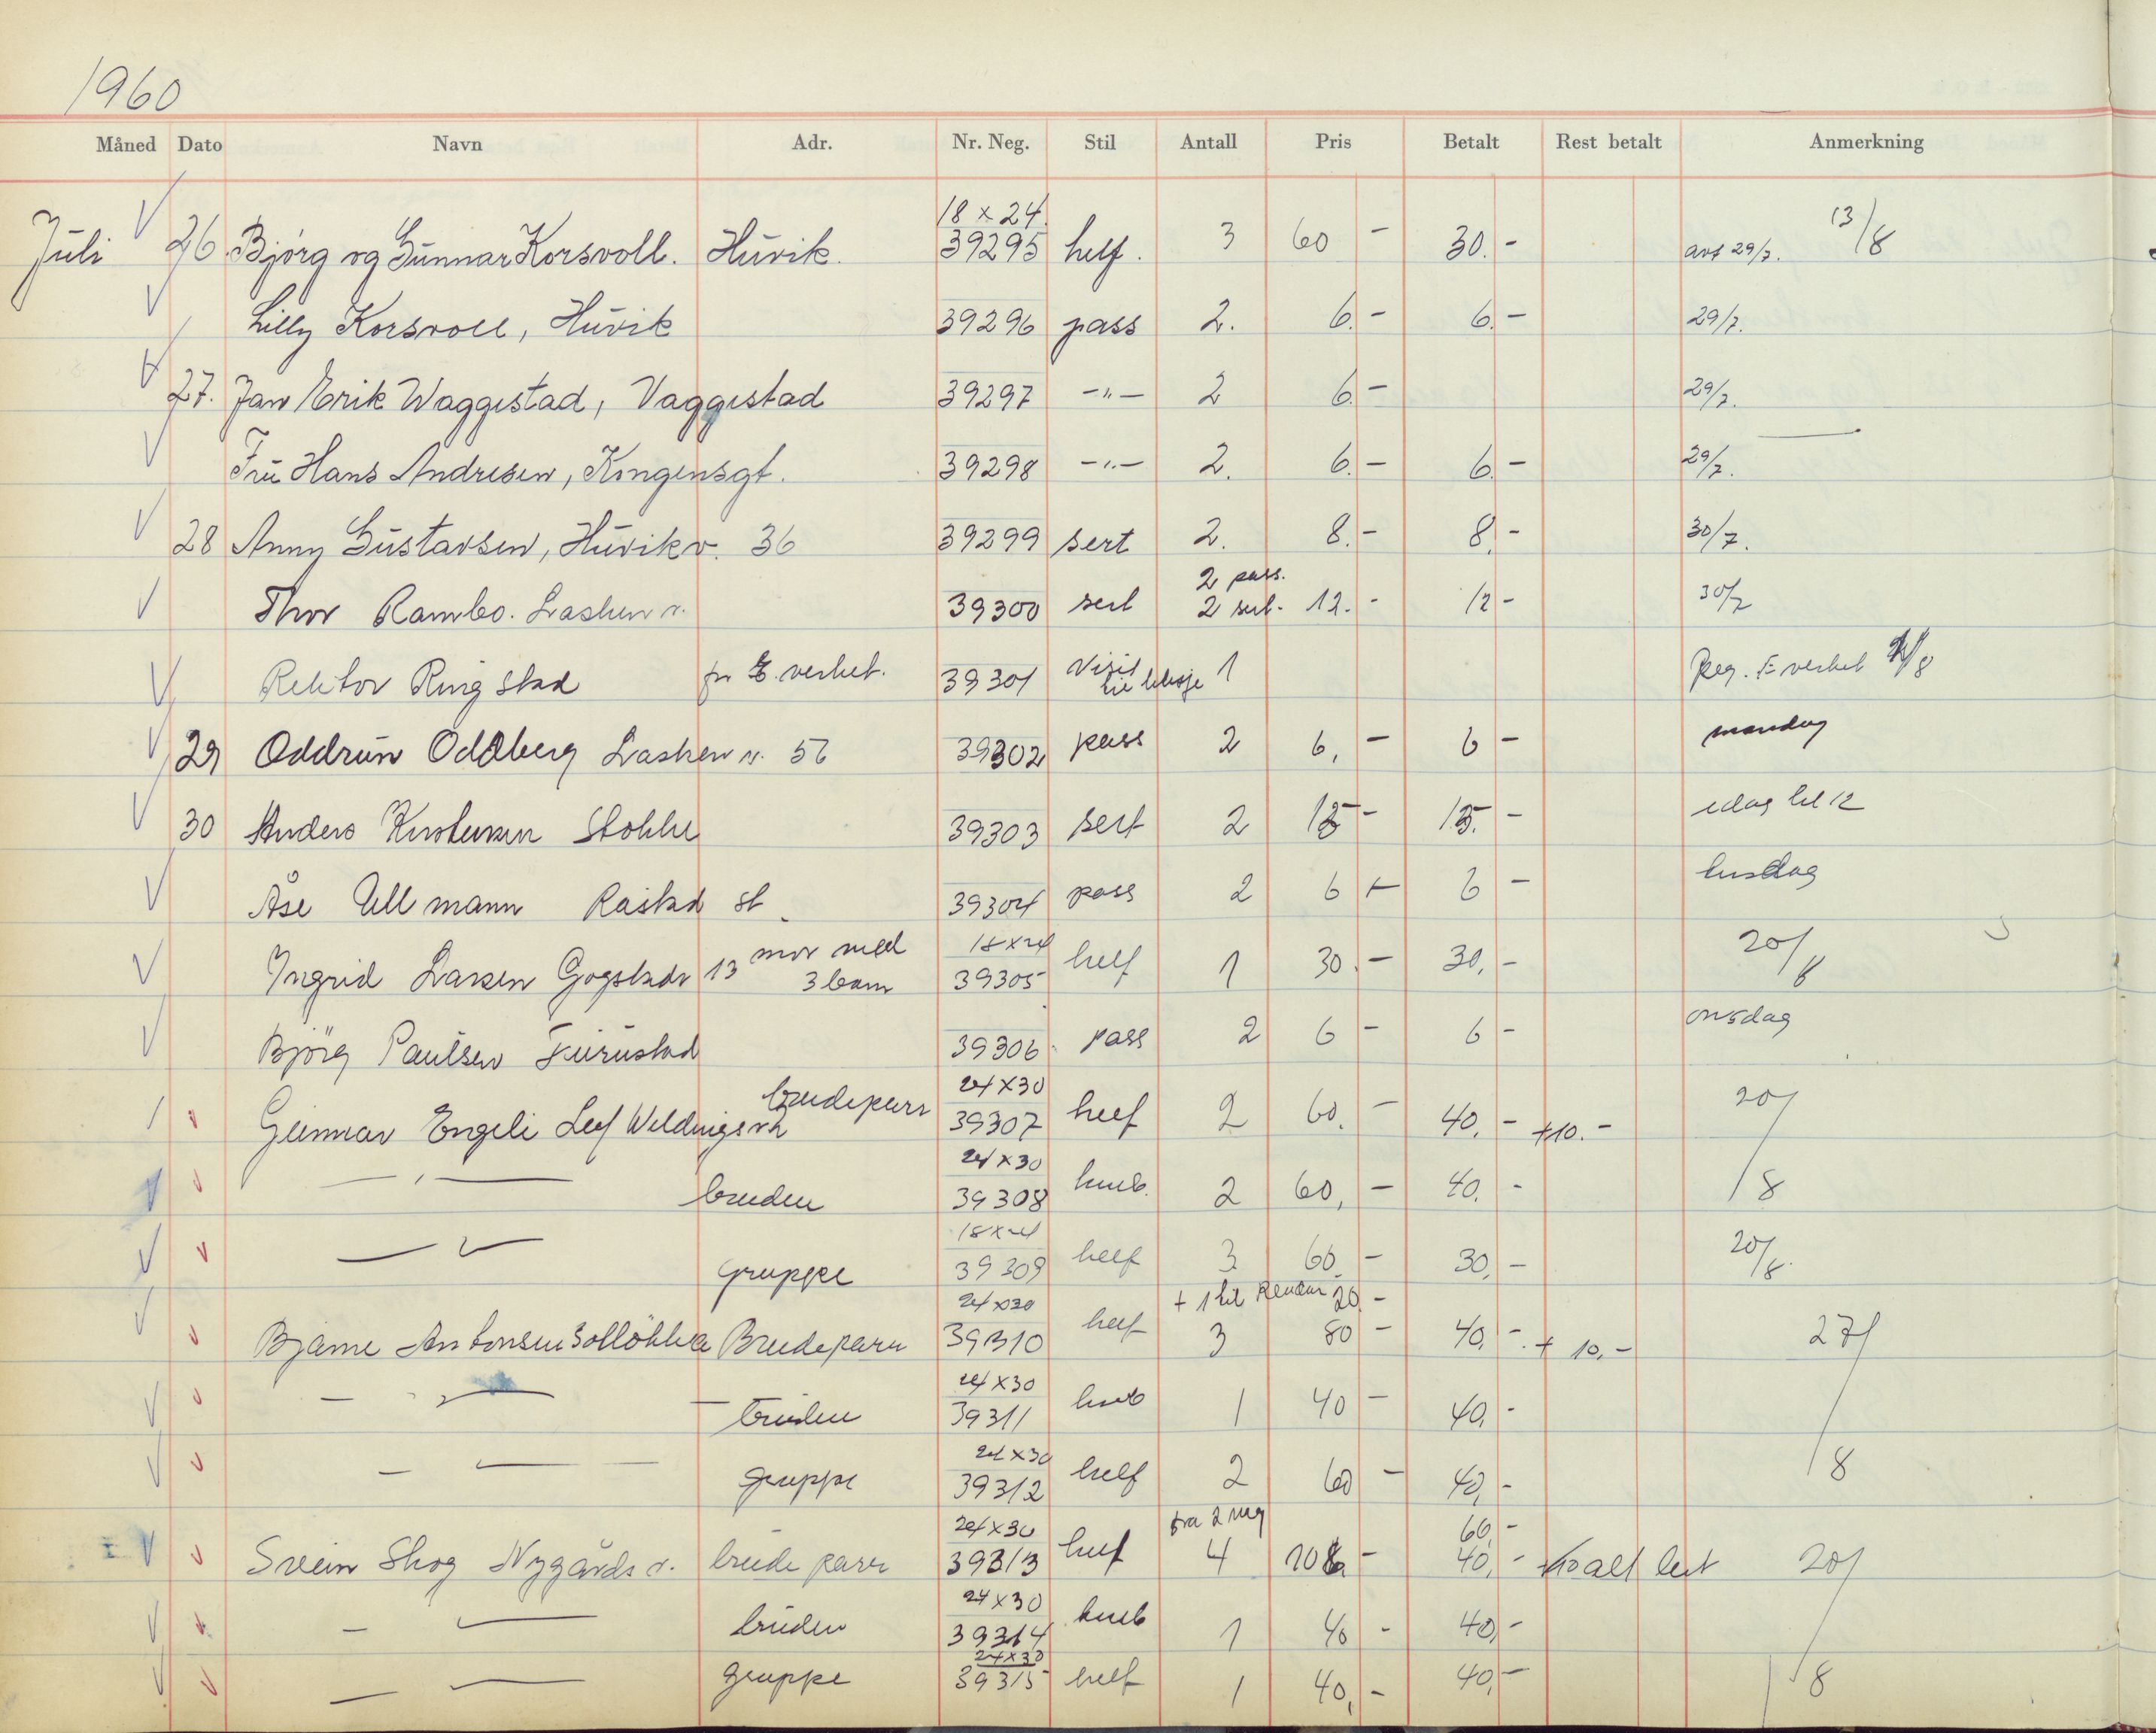 1960
Måned Dato Navn Adr. Nr. Neg. Stil Antall Pris Betalt Rest betalt Anmerkning
18 x 24
Juli 26 Bjørg og Gunnar Korsvoll. Huvik. 39295 helf. 3 60 - 30.- avs 29/7. 13/8
Lilly Korsvoll, Huvik 39296 pass 2. 6.- 6.- 29/7.
27. Jan Erik Waggestad, Vaggestad 39297 -"- 2 6.- 29/7.
Fru Hans Andresen, Kongensgt. 39298 -"- 2. 6.- 6.- 29/7.
28 Anny Gustavsen, Huvikv. 36 39299 sert 2. 8.- 8.- 30/7.
2 pass.
Thor Rambo. Lasken v. 39300 sert 2 sert. 12.- 12 - 30/7
Rektor Ringstad for E. verket. 39301 Visit 1 Reg. E verket
29 Oddrun Oddberg Lasken v. 56 39302 pass 2 6,- 6 - mandag
30 Anders Kristensen Stokke 39303 sert 2 - - idag kl 12
Åse Ullmann Råstad st. 39304 pass 2 6 - 6 - tirsdag
mor med 18x24
Ingrid Larsen Gogstadv 13 3 barn 39305 helf 1 30.- 30,- 20/8
Bjørg Paulsen Furustad 39306 pass 2 6 - 6 - onsdag
brudepar 24x30
Gunnar Engeli Leif Weldingsv 39307 helf 2 60.- 40,- +10.- 20/8
24x30
-"- bruden 39308 kneb. 2 60,- 40.-
18x24
-"- gruppe 39309 helf 3 60,- 30,- 20/8.
24x30 + 1 til 20,-
Bjarne Antonsen Solløkka Brudepar 39310 helf 3 80 - 40,- + 10,- 27/8
24x30
-"- bruden 39311 kneb 1 40 - 40,-
24x30
-"- gruppe 39312 helf 2 60 - 40,-
24x30 fra 2 neg 60,-
Svein Skog Nygårds v. brudepar 39313 helf 4 - 40,- alt 20/8
24x30
-"- bruden 39314 kneb 1 40 - 40,-
24x30
-"- gruppe 39315 helf 1 40,- 40,-